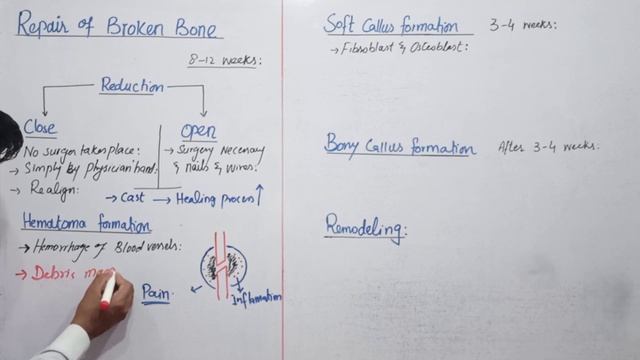 Repair of Broken Bone
8-12 weeks:
Reduction
Close
No surger takes place:
→ Simply by physician hand:
→ Realign:
Open
→ Surgery Necenary
& nails & wires:
→ Cast → Healing process ↑
Hematoma formation
→ Hemorrhage of Blood vessels:
→ Debris
Pain.
Inflammation
Soft Callus formation 3-4 weeks:
→ Fibroblast & Osteoblast:
Bony Callus formation After 3-4 weeks:
Remodeling: